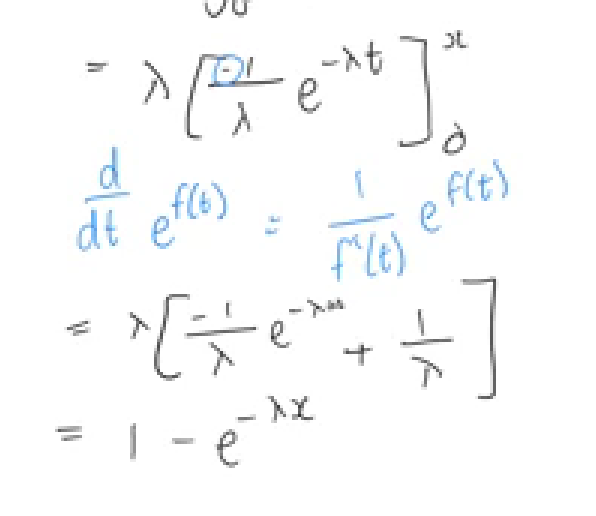 = λ[-1/λ e^{-λt}]_0^x
d/dt e^{f(t)} = 1/f'(t) e^{f(t)}
= λ[-1/λ e^{-λx} + 1/λ]
= 1 - e^{-λx}